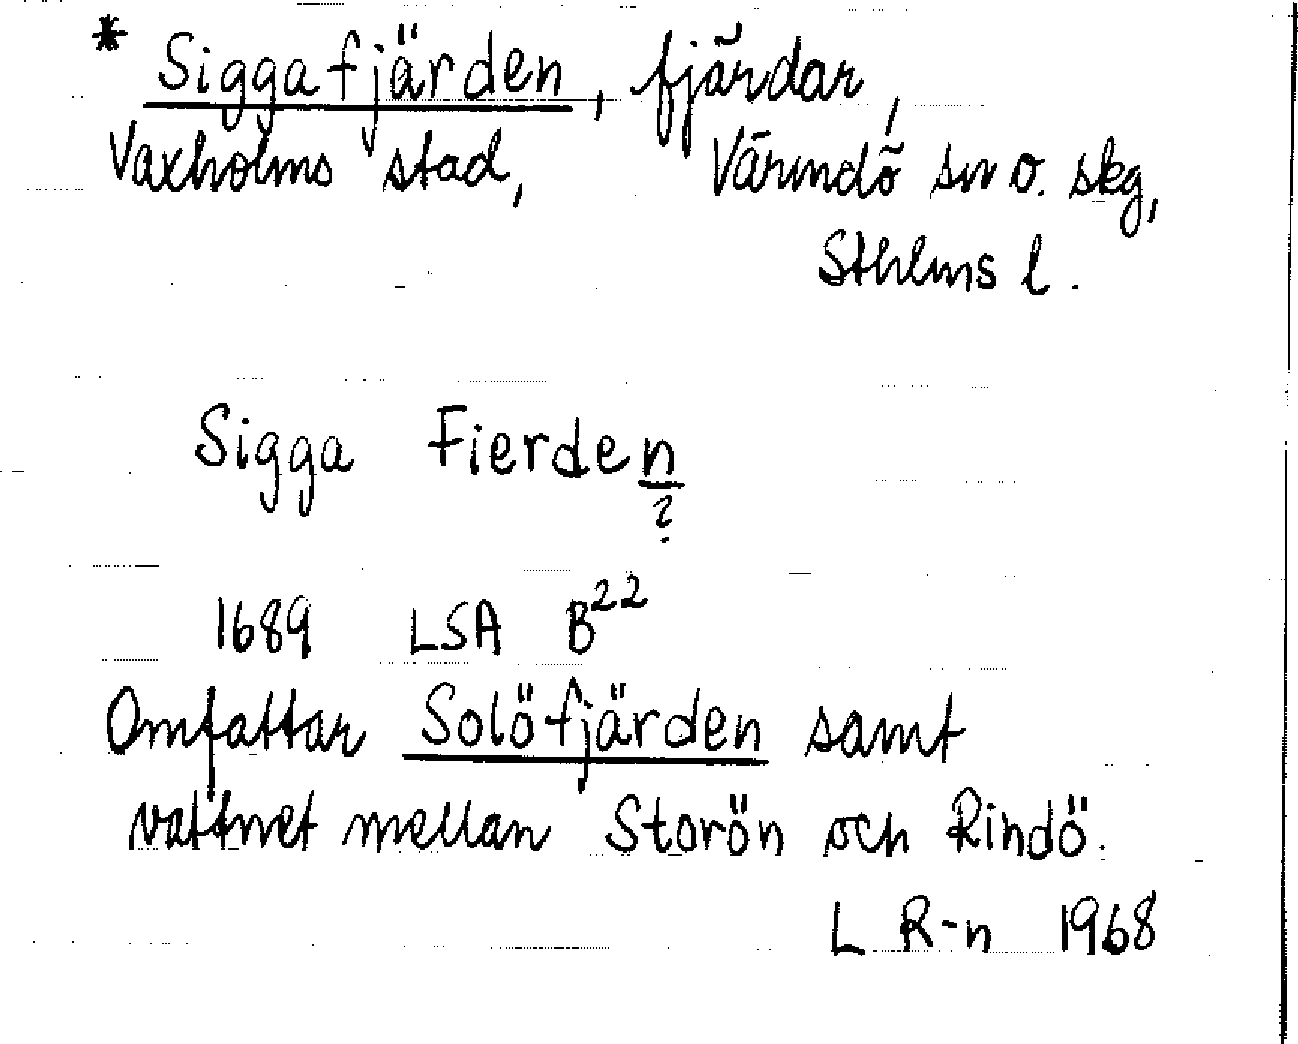 * Siggafjärden, fjärdar,
Vaxholms stad, Värmdö sn o. skg,
Sthlms l.
Sigga Fierden
?
1689 LSA B22
Omfattar Solöfjärden samt
vattnet mellan Storön och Rindö.
L R-n 1968